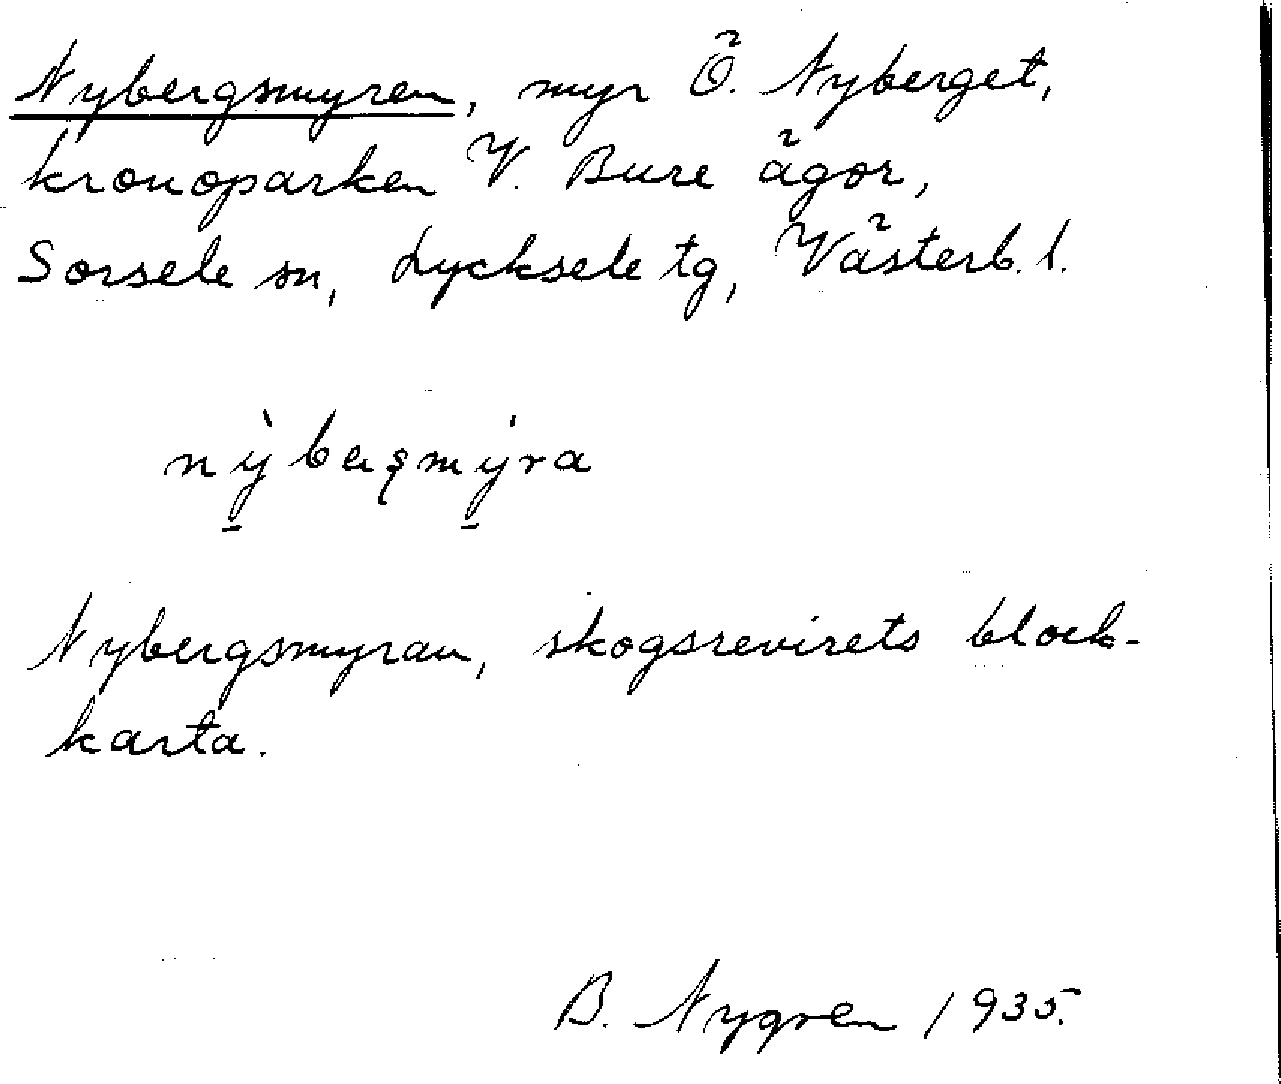 Nybergsmyren, myr Ö. Nyberget,
kronoparken V. Bure ägor,
Sorsele sn, Lycksele tg, Västerb. l.
Nybergsmyran, skogsrevirets block-
karta.
B. Nygren 1935.